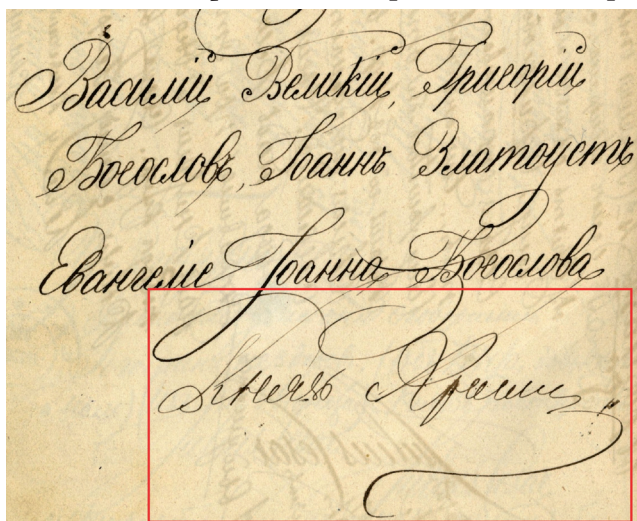 Василій Великій, Григорій
Богословъ, Іоаннъ Златоустъ
Евангеліе Іоанна Богослова
Князь